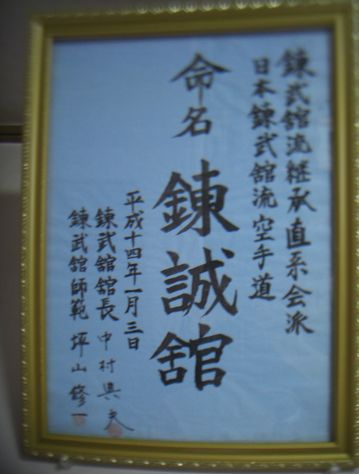 錬武舘流継承直系会派
日本錬武舘流空手道
命名
錬誠舘
平成十四年一月三日
錬武舘舘長 中村興夫
錬武舘師範 坪山修一